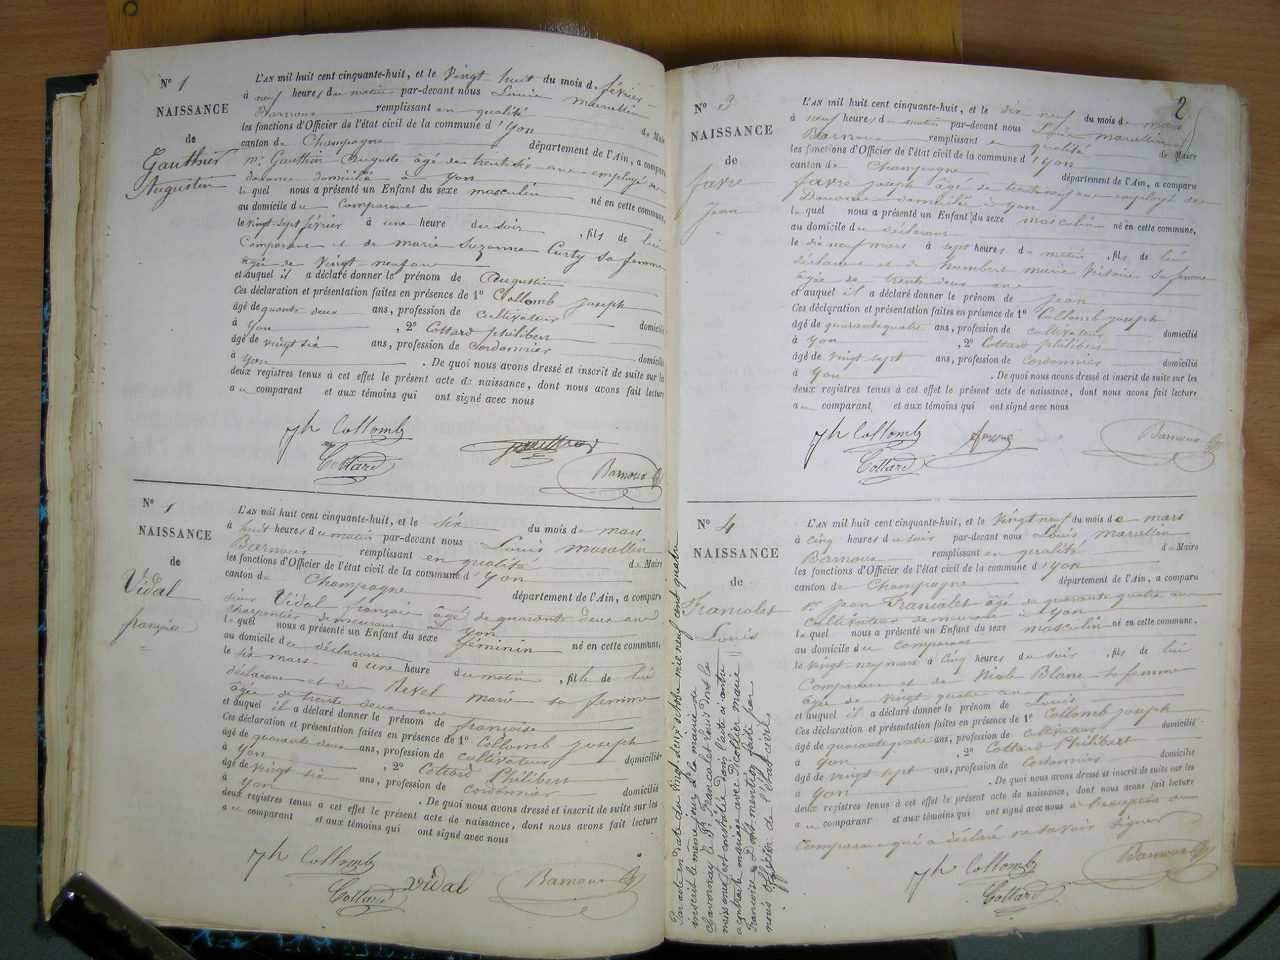 N° 1
NAISSANCE
de
Gauthier
Augustin
L'AN mil huit cent cinquante-huit, et le vingt huit du mois de février
à neuf heures du matin par-devant nous Louis Marcellin
Barnoux remplissant en qualité de Maire
les fonctions d'Officier de l'état civil de la commune d'Yon
canton de Champagne département de l'Ain, a comparu
mr Gauthier Auguste âgé de trente six ans employé des
douanes domicilié à Yon
lequel nous a présenté un Enfant du sexe masculin né en cette commune,
au domicile du comparant
le vingt-sept février à une heure du soir, fils de lui
Comparant et de marie Suzanne Curty sa femme
âgée de vingt neuf ans
et auquel il a déclaré donner le prénom de Augustin
Ces déclaration et présentation faites en présence de 1° Collomb joseph
âgé de quarante deux ans, profession de cultivateur domicilié
à Yon, 2° Cottard philibert
âgé de vingt six ans, profession de Cordonnier domicilié
à Yon. De quoi nous avons dressé et inscrit de suite sur les
deux registres tenus à cet effet le présent acte de naissance, dont nous avons fait lecture
au comparant et aux témoins qui ont signé avec nous
jh Collomb
Cottard
Barnoux
N° 1
NAISSANCE
de
Vidal
françoise
L'AN mil huit cent cinquante-huit, et le six du mois de mars
à huit heures du matin par-devant nous Louis marcellin
Barnoux remplissant en qualité de Maire
les fonctions d'Officier de l'état civil de la commune d'Yon
canton de Champagne département de l'Ain, a comparu
sieur Vidal français âgé de quarante deux ans
charpentier demeurant à Yon
lequel nous a présenté un Enfant du sexe féminin né en cette commune,
au domicile du déclarant
le six mars à une heure du matin, fille de lui
déclarant et de Revel marie sa femme
âgée de trente deux ans
et auquel il a déclaré donner le prénom de françoise
Ces déclaration et présentation faites en présence de 1° Collomb joseph
âgé de quarante deux ans, profession de cultivateur domicilié
à Yon, 2° Cottard Philibert
âgé de vingt six ans, profession de cordonnier domicilié
à Yon. De quoi nous avons dressé et inscrit de suite sur les
deux registres tenus à cet effet le présent acte de naissance, dont nous avons fait lecture
au comparant et aux témoins qui ont signé avec nous
jh Collomb
Cottard vidal Barnoux
2
N° 3
NAISSANCE
de
favre
Jean
L'AN mil huit cent cinquante-huit, et le dix neuf du mois de mars
à neuf heures du matin par-devant nous Louis marcellin
Barnoux remplissant en qualité de Maire
les fonctions d'Officier de l'état civil de la commune d'Yon
canton de Champagne département de l'Ain, a comparu
favre joseph âgé de trente neuf ans employé des
Douanes domicilié à Yon
lequel nous a présenté un Enfant du sexe masculin né en cette commune,
au domicile du déclarant
le dix neuf mars à sept heures du matin, fils de lui
déclarant et de humbert marie victoire sa femme
âgée de trente deux ans
et auquel il a déclaré donner le prénom de jean
Ces déclaration et présentation faites en présence de 1° Collomb joseph
âgé de quarante quatre ans, profession de cultivateur domicilié
à Yon, 2° Cottard philibert
âgé de vingt sept ans, profession de cordonnier domicilié
à Yon. De quoi nous avons dressé et inscrit de suite sur les
deux registres tenus à cet effet le présent acte de naissance, dont nous avons fait lecture
au comparant et aux témoins qui ont signé avec nous
jh Collomb
Cottard
Barnoux
N° 4
NAISSANCE
de
Francalet
Louis
L'AN mil huit cent cinquante-huit, et le vingt neuf du mois de mars
à cinq heures du soir par-devant nous Louis marcellin
Barnoux remplissant en qualité de Maire
les fonctions d'Officier de l'état civil de la commune d'Yon
canton de Champagne département de l'Ain, a comparu
sr jean Francalet âgé de quarante quatre ans
cultivateur demeurant à Yon
lequel nous a présenté un Enfant du sexe masculin né en cette commune,
au domicile du comparant
le vingt neuf mars à cinq heures du soir, fils de lui
Comparant et de Blanc sa femme
âgée de vingt quatre ans
et auquel il a déclaré donner le prénom de Louis
Ces déclaration et présentation faites en présence de 1° Collomb joseph
âgé de quarante quatre ans, profession de cultivateur domicilié
à Yon, 2° Cottard Philibert
âgé de vingt sept ans, profession de cordonnier domicilié
à Yon. De quoi nous avons dressé et inscrit de suite sur les
deux registres tenus à cet effet le présent acte de naissance, dont nous avons fait lecture
au comparant et aux témoins qui ont signé avec nous à l'exception du
comparant qui a déclaré ne savoir signer
jh Collomb
Cottard
Barnoux
Par acte en date du vingt deux octobre mil neuf cent quatre
inscrit le même jour à la mairie de
le Sr Francalet Louis
dans l'acte ci contre
a contracté mariage avec Picollier marie
françoise. Dont mention faite par
nous officier de l'Etat civil